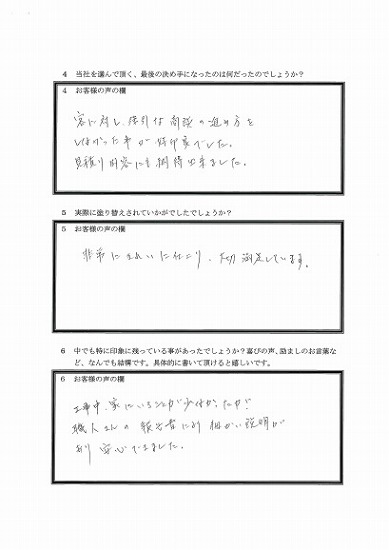 4 当社を選んで頂く、最後の決め手になったのは何だったのでしょうか？
4 お客様の声の欄
客に対し、強引な商談の進め方を
しなかった事が好印象でした。
見積り内容にも納得出来ました。
5 実際に塗り替えされていかがでしたでしょうか？
5 お客様の声の欄
非常にきれいに仕上り、大変満足しています。
6 中でも特に印象に残っている事があったでしょうか？喜びの声、励ましのお言葉な
ど、なんでも結構です。具体的に書いて頂けると嬉しいです。
6 お客様の声の欄
工事中、家にいる が少なかったが
職人さんの報告書により細かい説明が
あり安心できました。